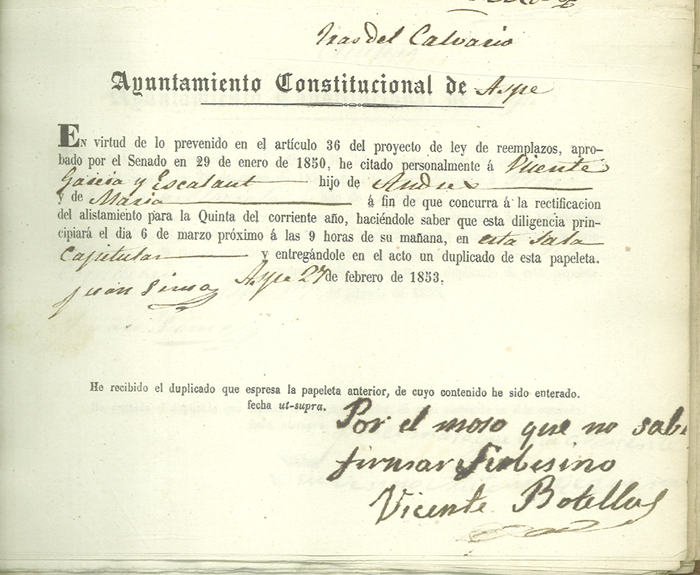 Tras del Calvario
Ayuntamiento Constitucional de Aspe
En virtud de lo prevenido en el artículo 36 del proyecto de ley de reemplazos, apro-
bado por el Senado en 29 de enero de 1850, he citado personalmente á Vicente
Garcia y Escalant hijo de Andres
y de Maria á fin de que concurra á la rectificacion
del alistamiento para la Quinta del corriente año, haciéndole saber que esta diligencia prin-
cipiará el dia 6 de marzo próximo á las 9 horas de su mañana, en esta Sala
Capitular y entregándole en el acto un duplicado de esta papeleta.
Juan Aspe 27 de febrero de 1853.
He recibido el duplicado que espresa la papeleta anterior, de cuyo contenido he sido enterado.
fecha ut-supra.
Por el moso que no sabe
firmar su besino
Vicente Botella